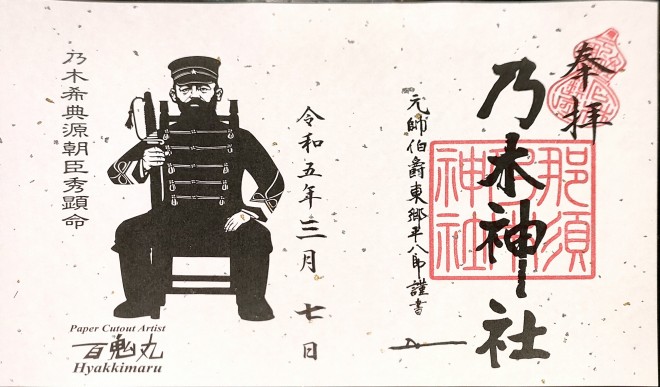 奉拝
乃木神社
那須
乃木
神社
元帥伯爵東郷平八郎謹書
令和五年三月七日
乃木希典源朝臣秀顕命
Paper Cutout Artist
百鬼丸
Hyakkimaru